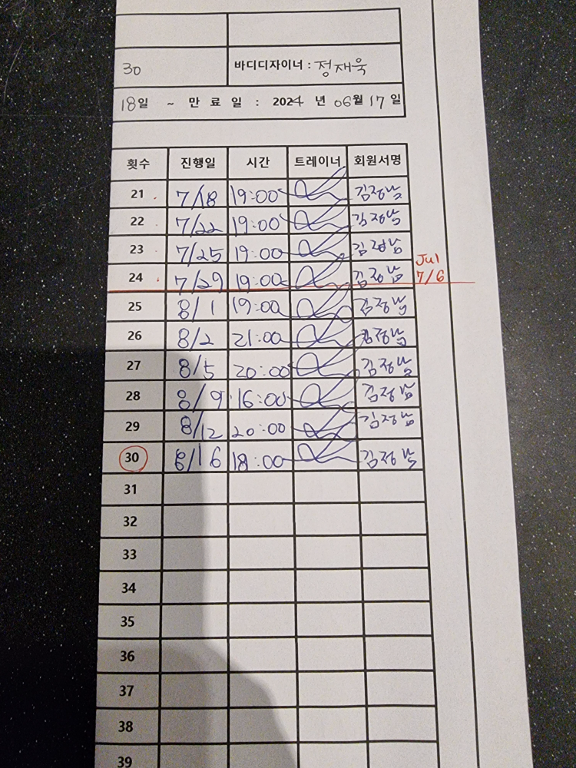 30 바디디자이너 : 정재욱
18일 ~ 만 료 일 : 2024 년 06월 17 일
횟수 진행일 시간 트레이너 회원서명
21 7/18 19:00 김정남
22 7/22 19:00 김정남
23 7/25 19:00 김정남
Jul
24 7/29 19:00 김정남 7/6
25 8/1 19:00 김정남
26 8/2 21:00 김정남
27 8/5 20:00 김정남
28 8/9 16:00 김정남
29 8/12 20:00 김정남
30 8/16 18:00 김정남
31
32
33
34
35
36
37
38
39